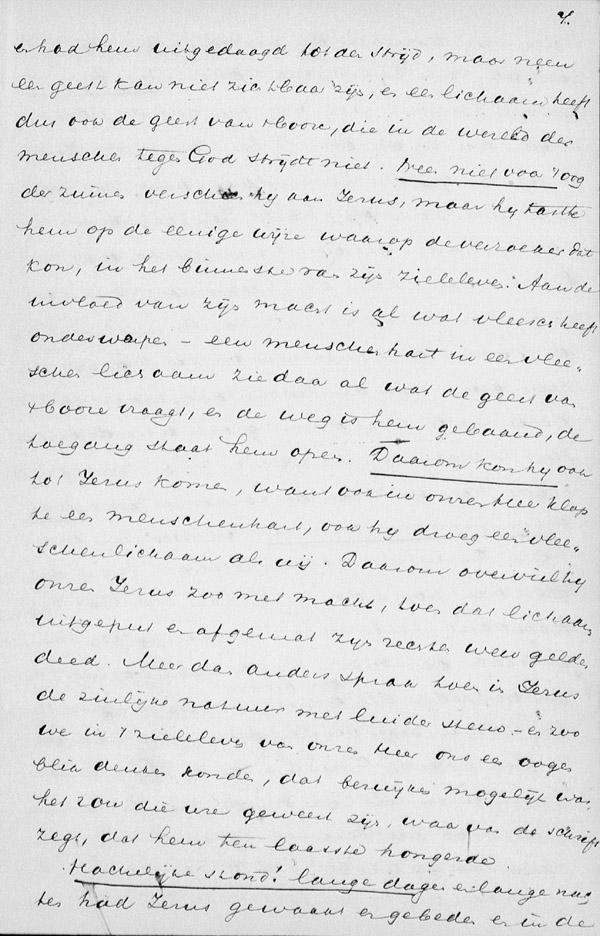 4.
er had hem uitgedaagd tot den strijd, maar neen
een geest kan niet zichtbaar zijn, en een lichaam heeft
dus ook de geest van den Booze, die in de wereld der
menschen tegen God strijdt niet. Neen niet voor 't oog
der zinnen verscheen hy aan Jezus, maar hy tastte
hem op de eenige wijze waarop de verzoeker dat
kon, in het binnenste van zijn zieleleven. Aan de
invloed van zijn macht is al wat vleesch heeft
onderworpen – een menschenhart in een vlee„
schen lichaam ziedaar al wat de geest van
den Booze vraagt, en de weg is hem gebaand, de
toegang staat hem open. Daarom kon hy ook
tot Jezus komen, want ook in onzen Heer klop
te een menschenhart, ook hy droeg een vlee„
schenlichaam als wij. Daarom overviel hy
onzen Jezus zoo met macht, toen dat lichaam
uitgeput en afgemat zijn rechten weer gelden
deed. Meer dan anders sprak toen in Jezus
de zinlijke natuur met luider stem – en zoo
we in 't zieleleven van onzen Heer ons een oogen
blik denken konden, dat bezwijken mogelijk was
het zou die ure geweest zijn, waarvan de schrift
zegt, dat hem ten laatste hongerde.
Hachelijke stond! lange dagen en lange nach
ten had Jezus gewaakt en gebeden en in de